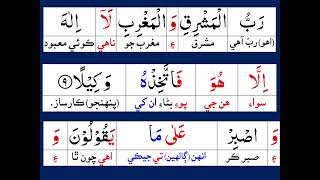 رَبُّ الْمَشْرِقِ وَ الْمَغْرِبِ لَآ اِلٰهَ
(اهو) رب آهي مشرق ۽ مغرب جو ناهي ڪوئي معبود
اِلَّا هُوَ فَاتَّخِذْهُ وَكِيْلًا ﴿٩﴾
سواءِ هن جي پوءِ بڻاءِ ان کي (پنهنجو) ڪارساز.
وَ اصْبِرْ عَلٰى مَا يَقُوْلُوْنَ وَ
۽ صبر ڪر انهن (ڳالهين) تي جيڪي اهي چون ٿا ۽